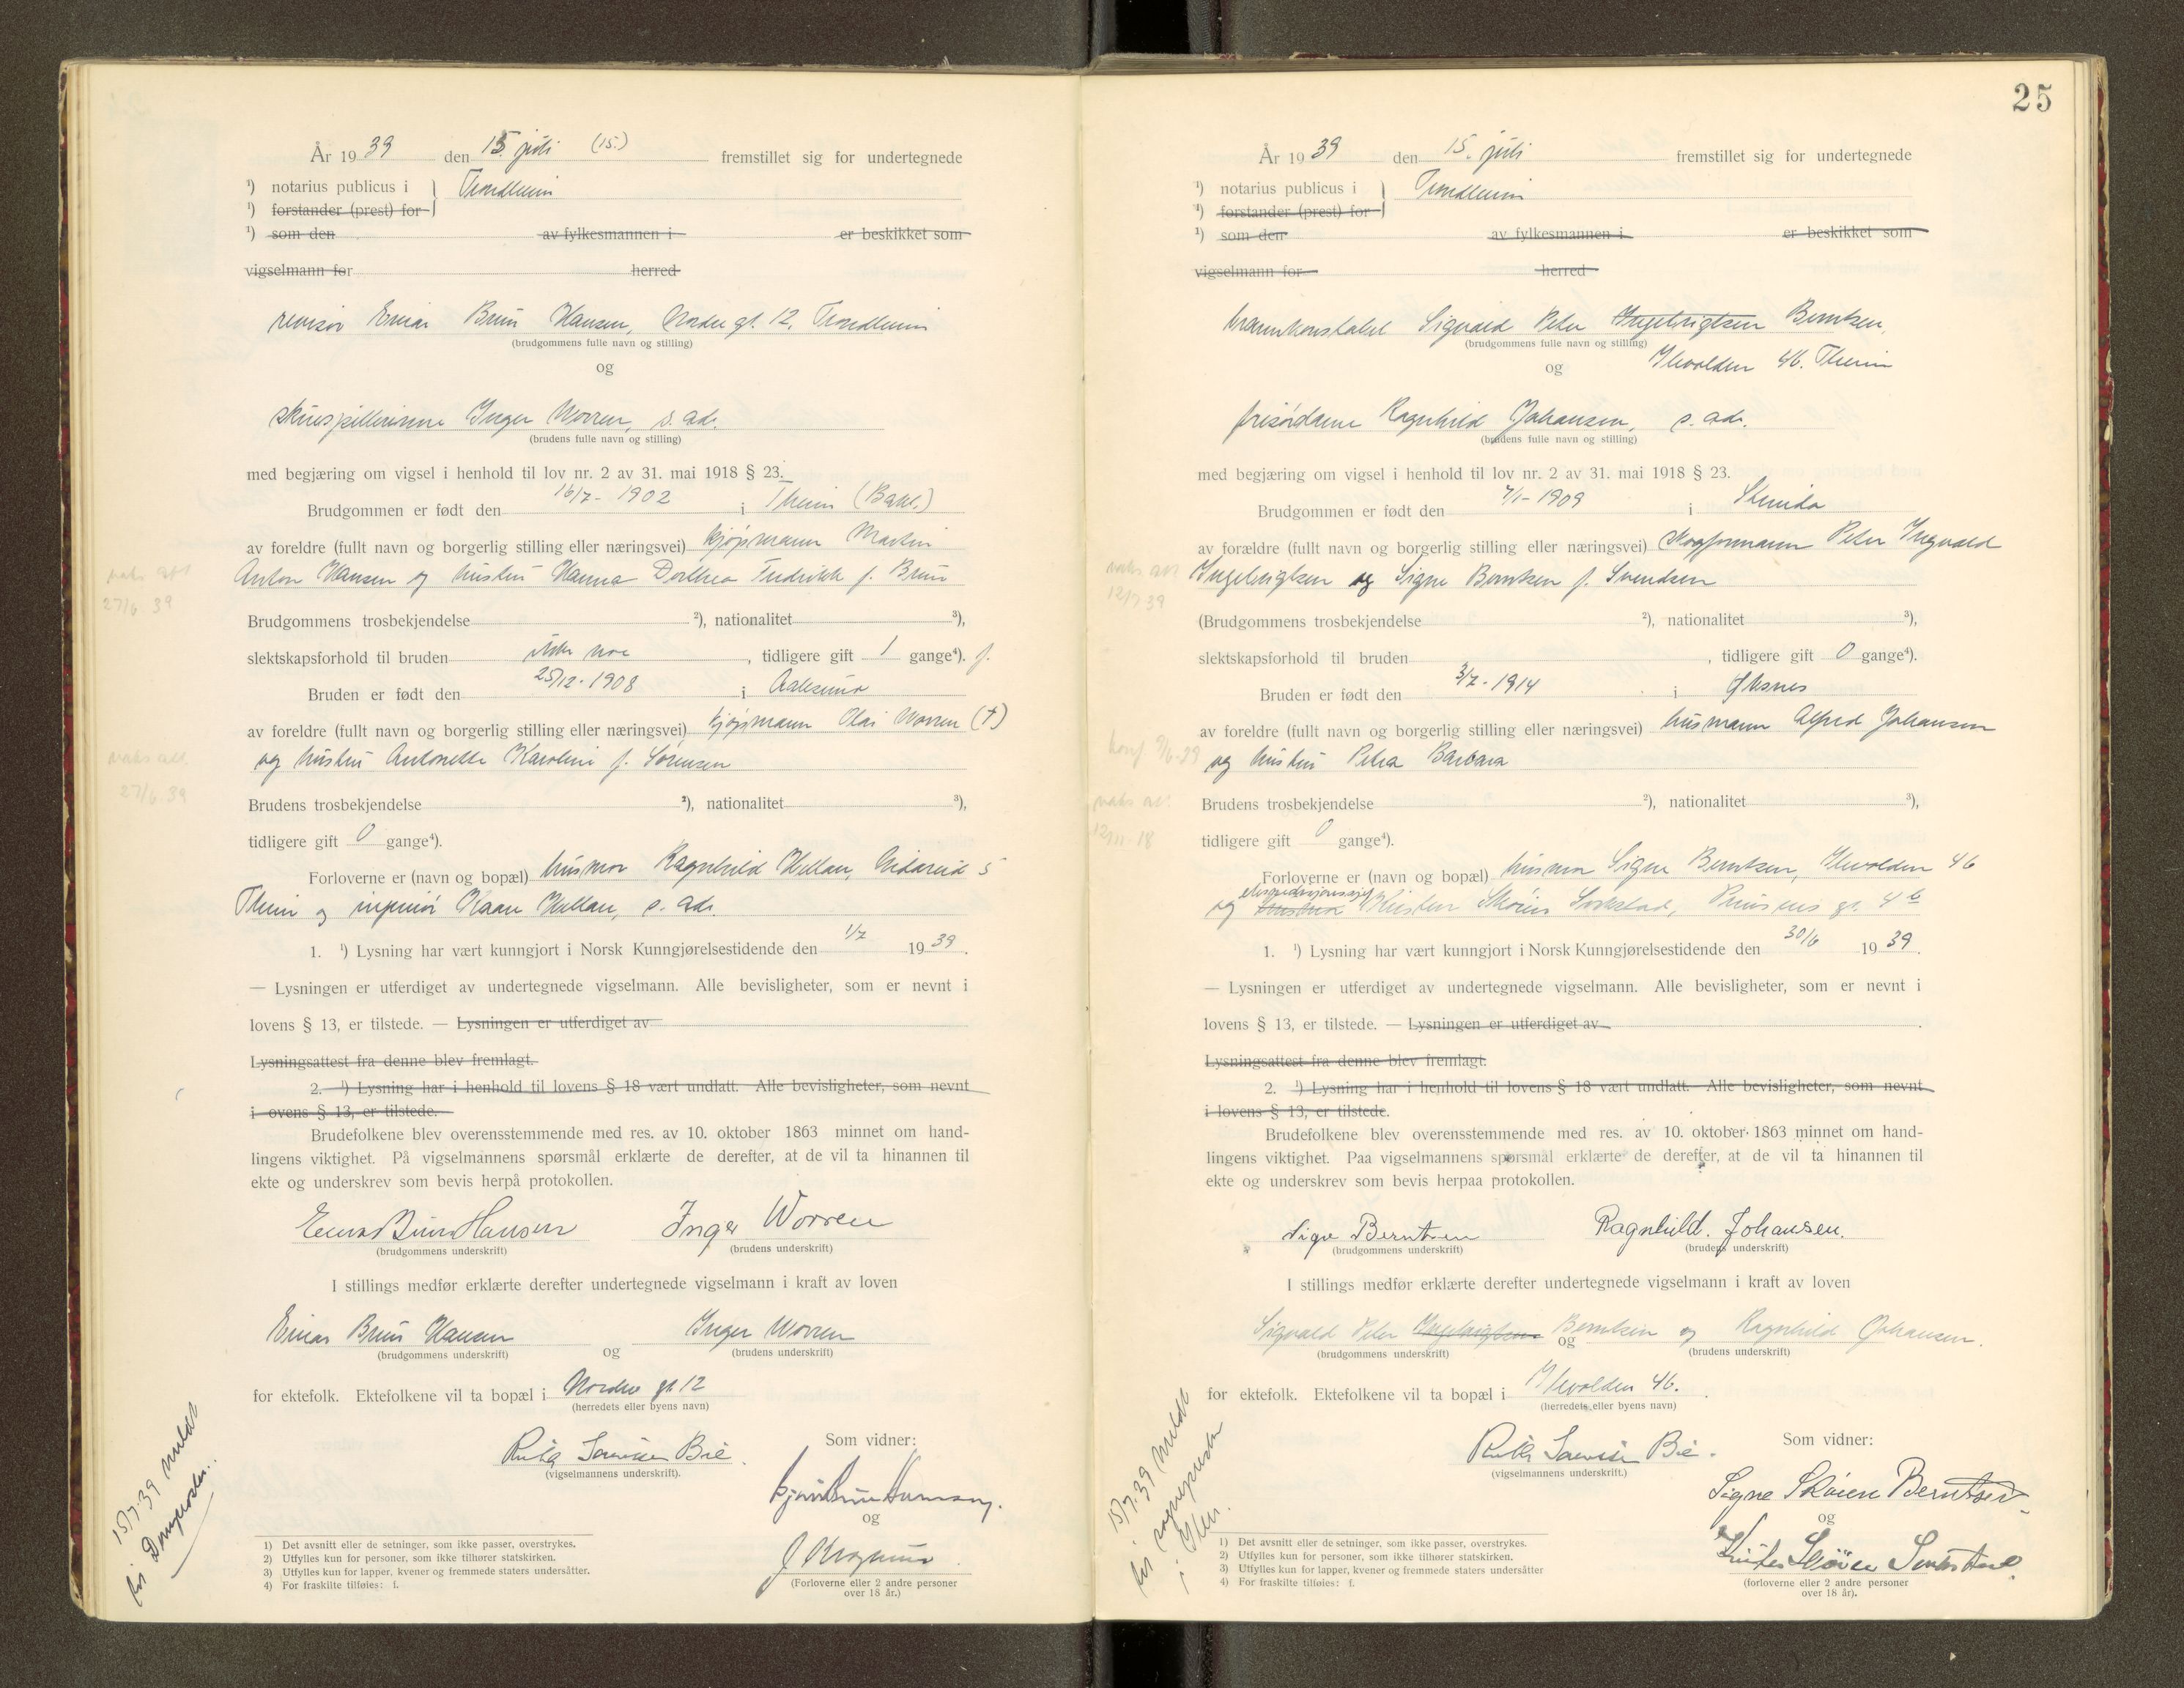 År 1939 den 15. juli (15.) fremstillet sig for undertegnede
¹) notarius publicus i } Trondheim
¹) forstander (prest) for
¹) som den av fylkesmannen i er beskikket som
vigselmann for herred
revisor Einar Bruun Hansen, Nordre gt. 12, Trondheim
(brudgommens fulle navn og stilling)
og
skuespillerinne Inger Worren, s. adr.
(brudens fulle navn og stilling)
med begjæring om vigsel i henhold til lov nr. 2 av 31. mai 1918 § 23.
Brudgommen er født den 16/7- 1902 i Theim (Bakl.)
av foreldre (fullt navn og borgerlig stilling eller næringsvei) kjøpmann Martin
Anton Hansen og hustru Hanna Dorthea Fredrikk f. Bruun
vaks. att
27/6 39
Brudgommens trosbekjendelse ²), nationalitet ³),
slektskapsforhold til bruden ikke noe, tidligere gift 1 gange⁴). f.
Bruden er født den 25/12- 1908 i Aalesund
av foreldre (fullt navn og borgerlig stilling eller næringsvei) kjøpmann Olai Worren (†)
og hustru Antonette Karoline f. Sørensen
vaks att.
27/6 39
Brudens trosbekjendelse ²), nationalitet ³),
tidligere gift 0 gange⁴).
Forloverne er (navn og bopæl) husmor Ragnhild Hellan, Nidareid 5
Theim og ingeniør Kaare Hellan, s. adr.
1. ¹) Lysning har vært kunngjort i Norsk Kunngjørelsestidende den 1/7 1939.
— Lysningen er utferdiget av undertegnede vigselmann. Alle bevisligheter, som er nevnt i
lovens § 13, er tilstede. — Lysningen er utferdiget av
Lysningsattest fra denne blev fremlagt.
2. ¹) Lysning har i henhold til lovens § 18 vært undlatt. Alle bevisligheter, som nevnt
i ovens § 13, er tilstede.
Brudefolkene blev overensstemmende med res. av 10. oktober 1863 minnet om hand-
lingens viktighet. På vigselmannens spørsmål erklærte de derefter, at de vil ta hinannen til
ekte og underskrev som bevis herpå protokollen.
Einar Bruun Hansen Inger Worren
(brudgommens underskrift) (brudens underskrift)
I stillings medfør erklærte derefter undertegnede vigselmann i kraft av loven
Einar Bruun Hansen og Inger Worren
(brudgommens underskrift) (brudens underskrift)
for ektefolk. Ektefolkene vil ta bopæl i Nordre gt 12
(herredets eller byens navn)
Som vidner:
Ruth Sørensen Bie.
(vigselmannens underskrift).
og
(Forloverne eller 2 andre personer
over 18 år.)
15/7-39 meldt
til Domprosten.
1) Det avsnitt eller de setninger, som ikke passer, overstrykes.
2) Utfylles kun for personer, som ikke tilhører statskirken.
3) Utfylles kun for lapper, kvener og fremmede staters undersåtter.
4) For fraskilte tilføies: f.
25
År 1939 den 15. juli fremstillet sig for undertegnede
¹) notarius publicus i } Trondheim
¹) forstander (prest) for
¹) som den av fylkesmannen i er beskikket som
vigselmann for herred
brannkonstabel Sigvald Peter Ingebrigtsen Berntsen,
(brudgommens fulle navn og stilling)
og Ilevolden 46. Theim
frisørdame Ragnhild Johansen, s. adr.
(brudens fulle navn og stilling)
med begjæring om vigsel i henhold til lov nr. 2 av 31. mai 1918 § 23.
Brudgommen er født den 7/1- 1909 i Strinda
av forældre (fullt navn og borgerlig stilling eller næringsvei) Peter Ingvald
Ingebrigtsen og Signe Berntsen f. Svendsen
vaks att
12/7 39
(Brudgommens trosbekjendelse ²), nationalitet ³),
slektskapsforhold til bruden, tidligere gift 0 gange⁴).
Bruden er født den 3/7- 1914 i Øksnes
av foreldre (fullt navn og borgerlig stilling eller næringsvei) husmann Alfred Johansen
og hustru Petra Barbara
konf 9/6-29
vaks att.
12/11-18
Brudens trosbekjendelse ²), nationalitet ³),
tidligere gift 0 gange⁴).
Forloverne er (navn og bopæl) husmor Signe Berntsen, Ilevolden 46
og Skøien Sørstad, Prinsens gt. 4 b
1. ¹) Lysning har vært kunngjort i Norsk Kunngjørelsestidende den 30/6 1939.
— Lysningen er utferdiget av undertegnede vigselmann. Alle bevisligheter, som er nevnt i
lovens § 13, er tilstede. — Lysningen er utferdiget av
Lysningsattest fra denne blev fremlagt.
2. ¹) Lysning har i henhold til lovens § 18 vært undlatt. Alle bevisligheter, som nevnt
i lovens § 13, er tilstede.
Brudefolkene blev overensstemmende med res. av 10. oktober 1863 minnet om hand-
lingens viktighet. Paa vigselmannens spørsmål erklærte de derefter, at de vil ta hinannen til
ekte og underskrev som bevis herpaa protokollen.
Sigv Berntsen Ragnhild. Johansen.
(brudgommens underskrift) (brudens underskrift)
I stillings medfør erklærte derefter undertegnede vigselmann i kraft av loven
Sigvald Peter Ingebrigtsen Berntsen og Ragnhild Johansen.
(brudgommens underskrift) og (brudens underskrift)
for ektefolk. Ektefolkene vil ta bopæl i Ilevolden 46.
(herredets eller byens navn)
Som vidner:
Ruth Sørensen Bie.
(vigselmannens underskrift.)
Signe Skøien Berntsen
og
(forloverne eller 2 andre personer
over 18 år).
15/7-39 meldt
til sognepresten
i Ilen.
1) Det avsnitt eller de setninger, som ikke passer, overstrykes.
2) Utfylles kun for personer, som ikke tilhører statskirken.
3) Utfylles kun for lapper, kvener og fremmede staters undersåtter
4) For fraskilte tilføies: f.